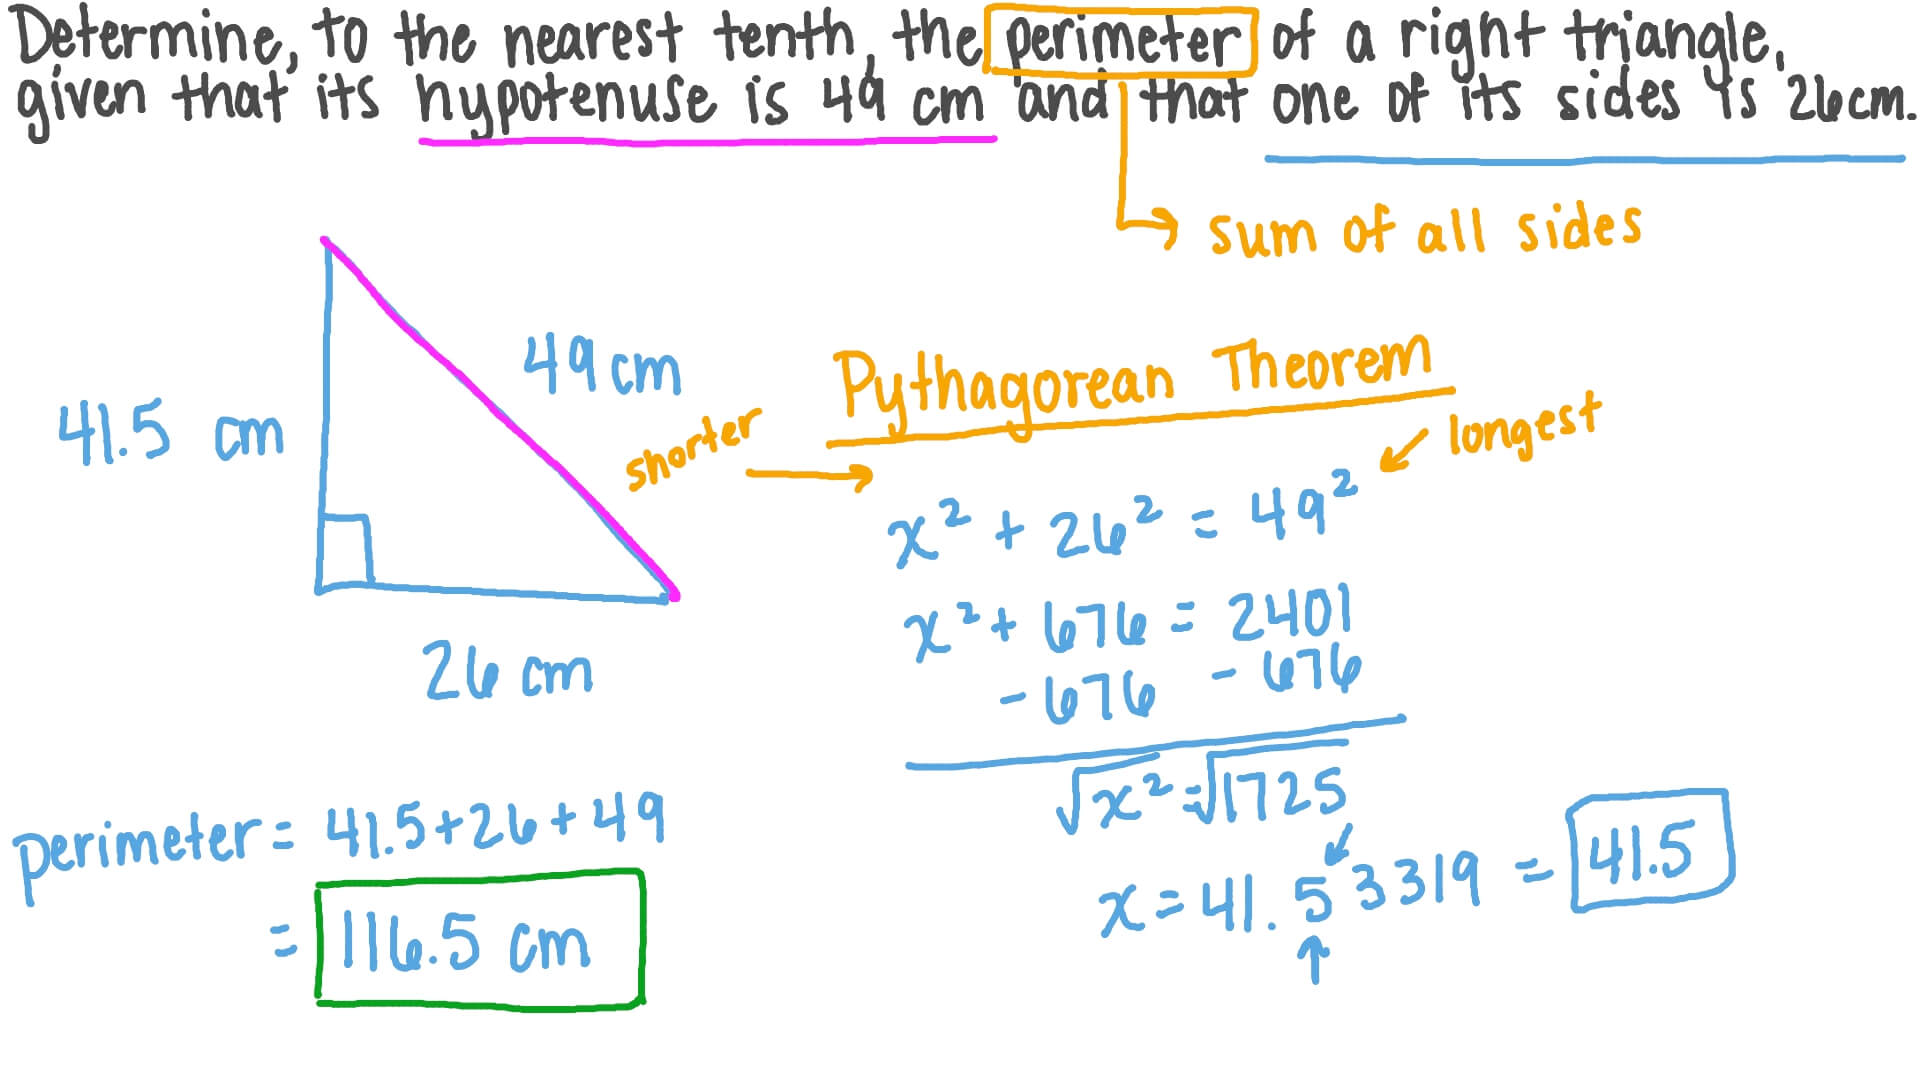 Determine, to the nearest tenth, the perimeter of a right triangle,
given that its hypotenuse is 49 cm and that one of its sides is 26cm.
sum of all sides
49 cm
41.5 cm
26 cm
Pythagorean Theorem
shorter
longest
x² + 26² = 49²
x² + 676 = 2401
- 676 - 676
√x² = √1725
x = 41.53319 = 41.5
perimeter = 41.5+26+49
= 116.5 cm